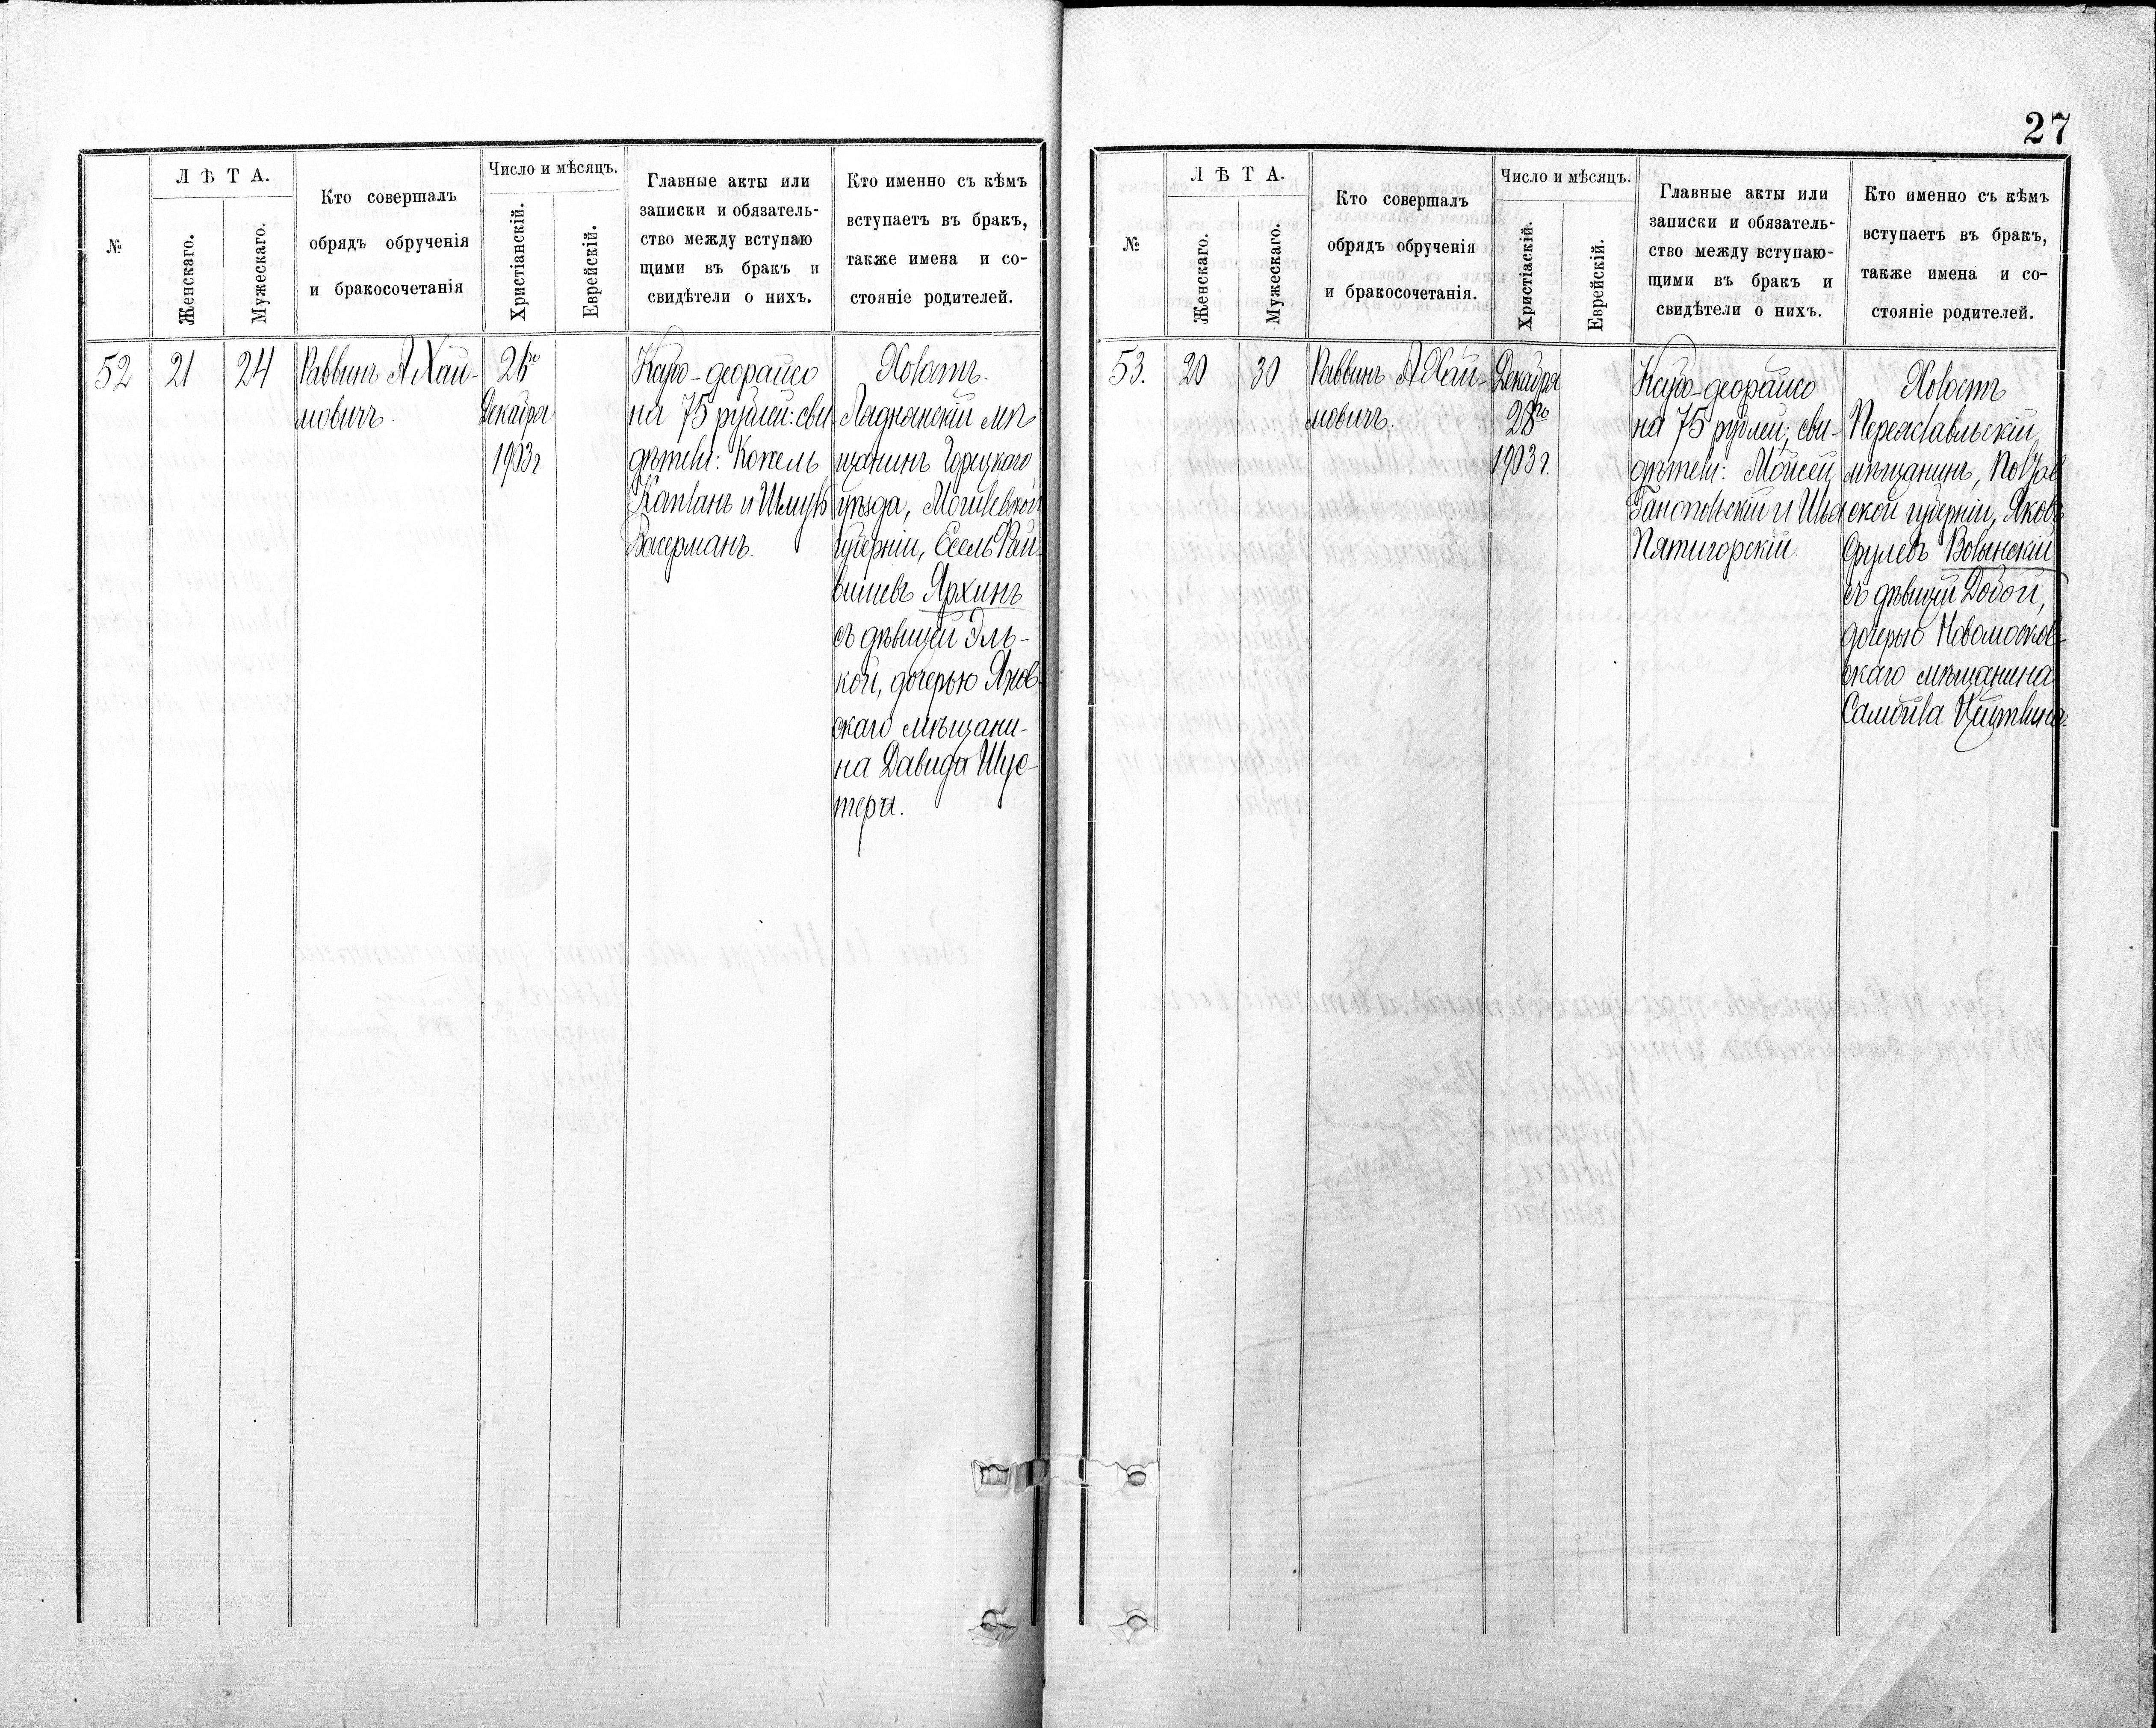 27
№
Л Ѣ Т А.
Женскаго.
Мужескаго.
Кто совершалъ
обрядъ обрученія
и бракосочетанія
Число и мѣсяцъ.
Христіанскій.
Еврейскій.
Главные акты или
записки и обязатель-
ство между вступаю
щими въ бракъ и
свидѣтели о нихъ.
Кто именно съ кѣмъ
вступаетъ въ бракъ,
также имена и со-
стояніе родителей.
52
21
24
Раввинъ А Хай-
мовичъ.
Декабря
1903 г.
Ксубо-деорайсо
на 75 рублей: сви
дѣтели: Копель
Капланъ и Шмуль
Васерманъ.
Холостъ.
Ляднянскій мѣ
щанинъ Горецкаго
уѣзда, Могилевской
губерніи, Есель Рай-
вишевъ Архинъ
съ дѣвицей Эль-
кой, дочерью Янов-
скаго мѣщани-
на Давида Шус-
тера.
№
Л Ѣ Т А.
Женскаго.
Мужескаго.
Кто совершалъ
обрядъ обрученія
и бракосочетанія.
Число и мѣсяцъ.
Христіаскій.
Еврейскій.
Главные акты или
записки и обязатель-
ство между вступаю-
щими въ бракъ и
свидѣтели о нихъ.
Кто именно съ кѣмъ
вступаетъ въ бракъ,
также имена и со-
стояніе родителей.
53.
20
30
Раввинъ А Хай-
мовичъ.
Декабря
28го
1903 г.
Ксубо-деорайсо
на 75 рублей; сви-
дѣтели: Мойсей
Ганопольскій и Илья
Пятигорскій.
Холостъ
Переяславльскій
мѣщанинъ, Полтав
ской губерніи, Яковъ
Срулевъ Волынскій
съ дѣвицей Добой,
дочерью Новомосков-
скаго мѣщанина
Самойла Цейтлина.